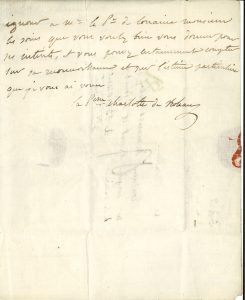 a Mr le Pce de Lorraine monsieur
les soins que vous voulez bien vous donner pour
ses interets, et vous pouvez certainement compter
sur sa reconnoissance et sur l'estime particuliere
que j'ai pour vous
la Pcesse Charlotte de Rohan